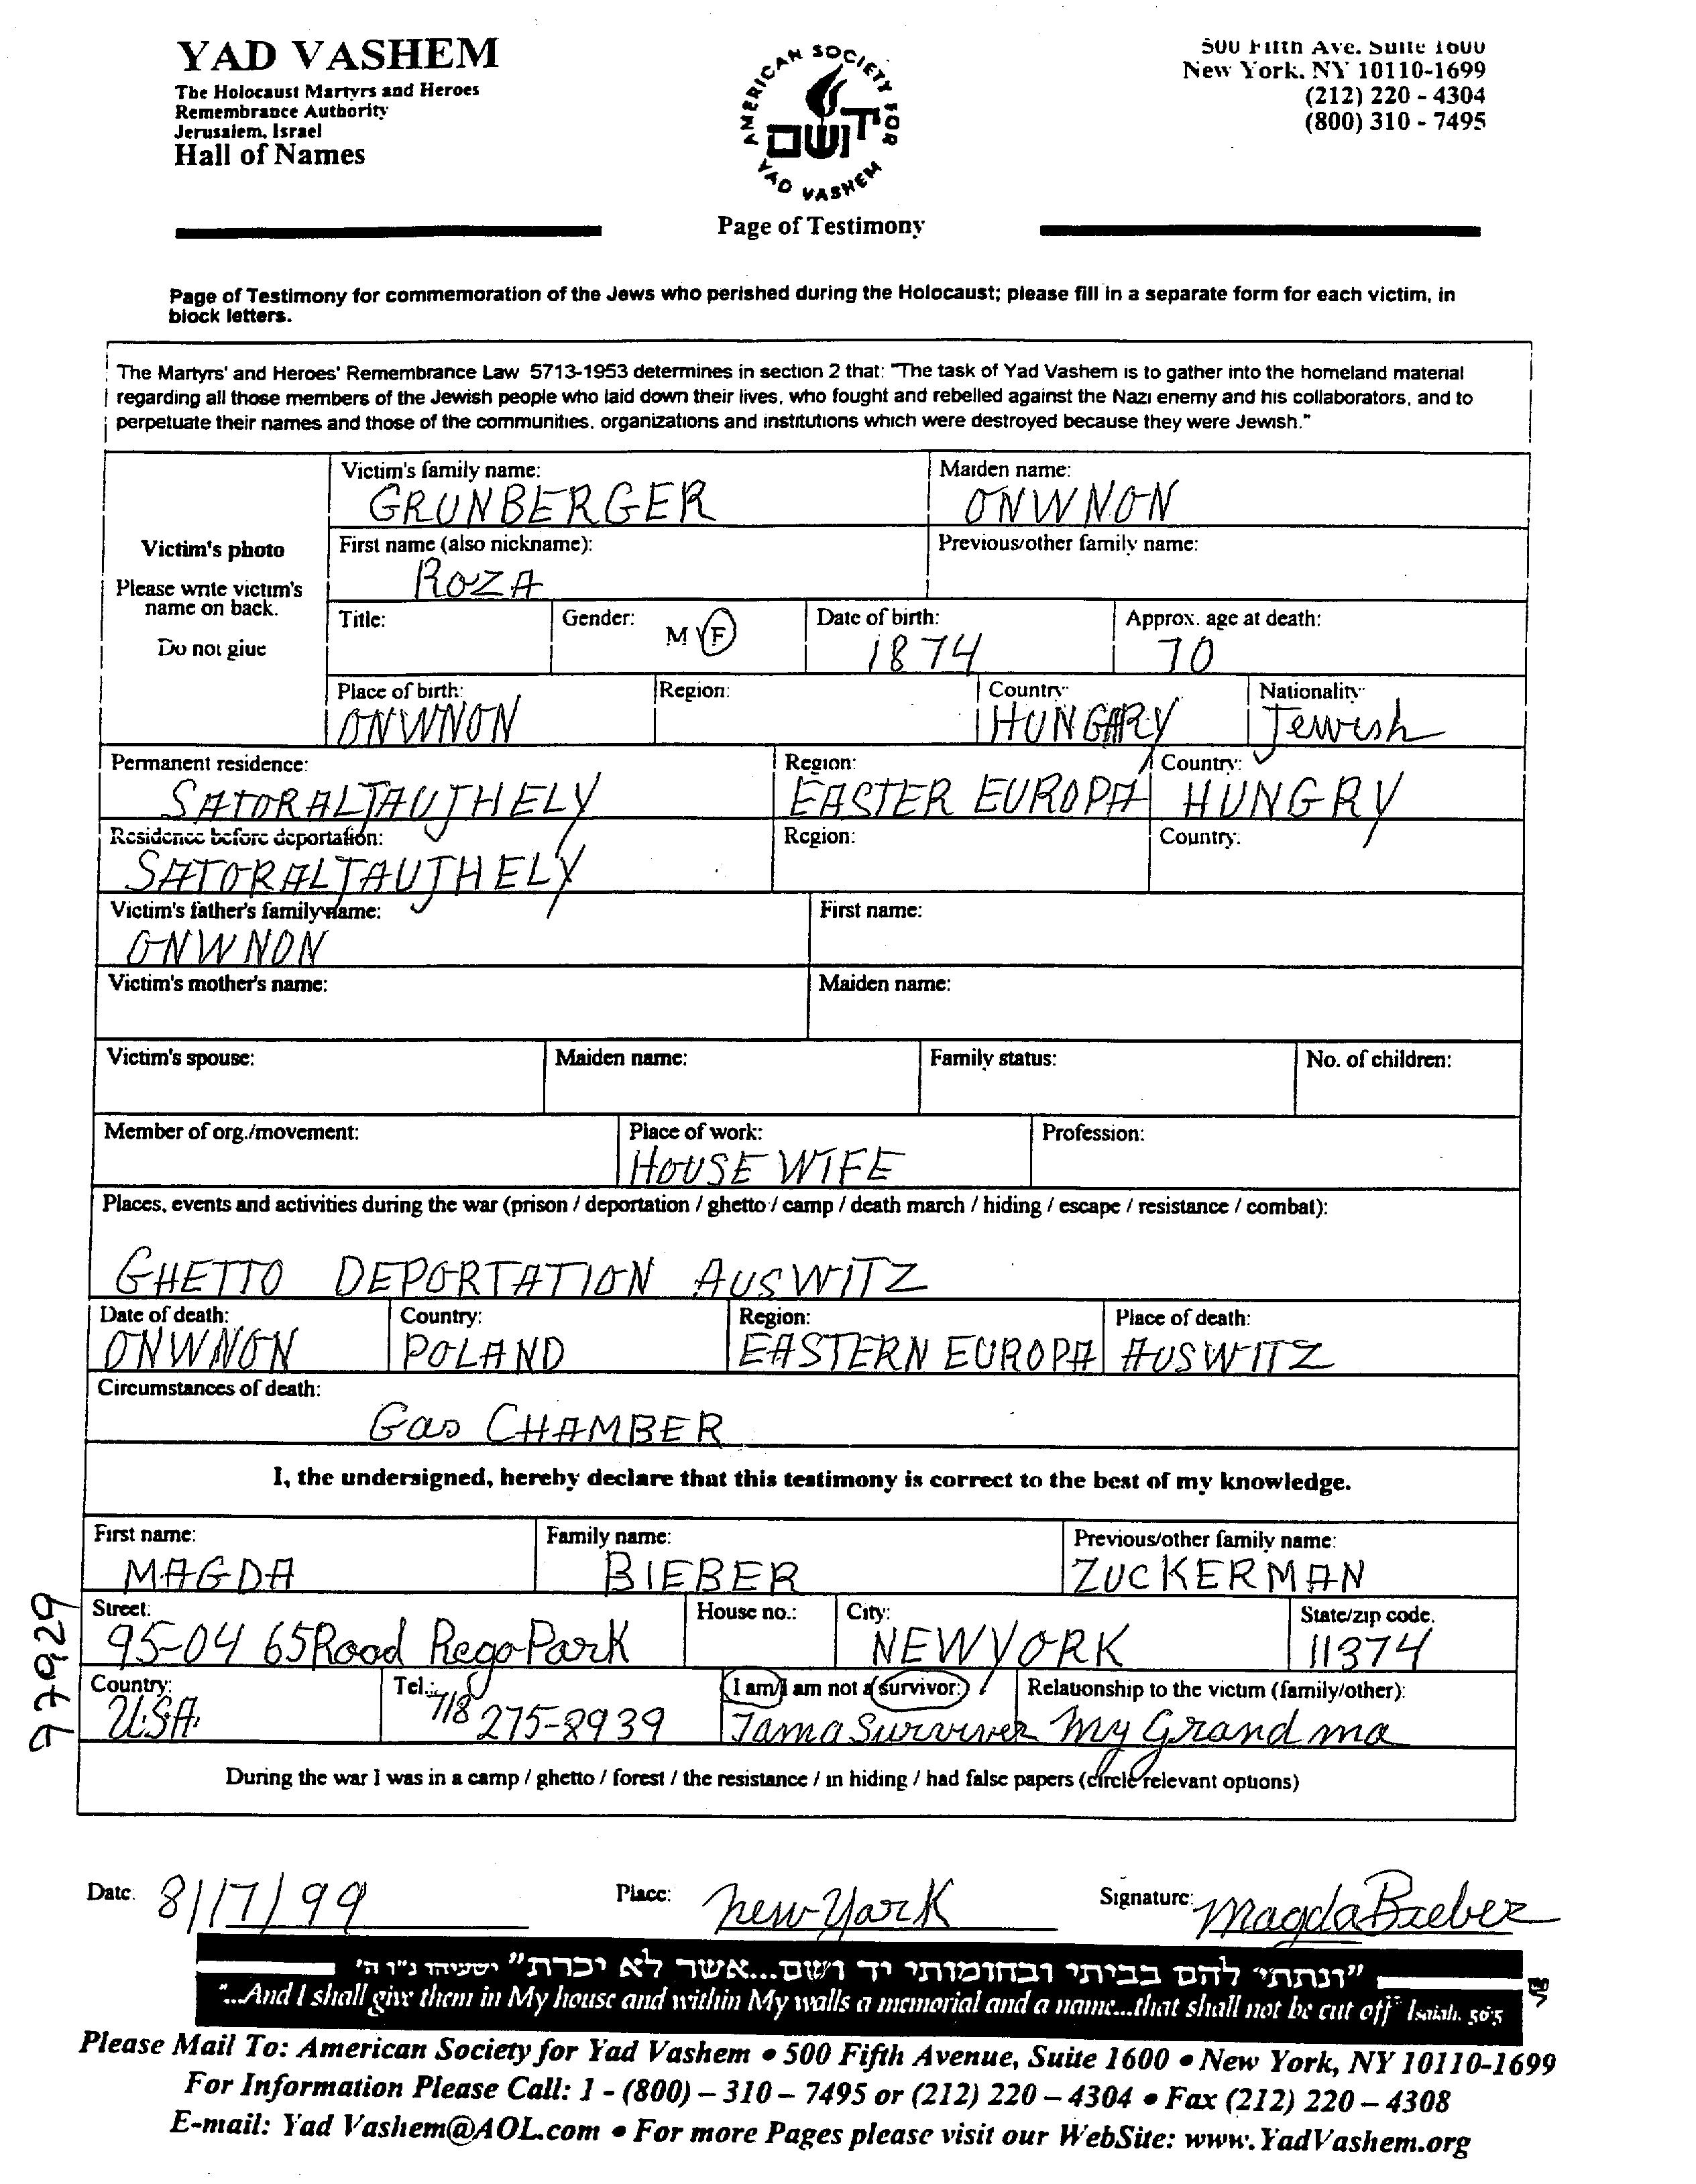 YAD VASHEM
The Holocaust Martyrs and Heroes
Remembrance Authority
Jerusalem, Israel
Hall of Names
AMERICAN SOCIETY FOR
יד ושם
YAD VASHEM
Page of Testimony
500 Fifth Ave. Suite 1600
New York, NY 10110-1699
(212) 220 - 4304
(800) 310 - 7495
Page of Testimony for commemoration of the Jews who perished during the Holocaust; please fill in a separate form for each victim, in
block letters.
The Martyrs' and Heroes' Remembrance Law 5713-1953 determines in section 2 that: "The task of Yad Vashem is to gather into the homeland material
regarding all those members of the Jewish people who laid down their lives, who fought and rebelled against the Nazi enemy and his collaborators, and to
perpetuate their names and those of the communities, organizations and institutions which were destroyed because they were Jewish."
Victim's photo
Please write victim's
name on back.
Do not glue
Victim's family name: Maiden name:
GRUNBERGER ONWNON
First name (also nickname): Previous/other family name:
ROZA
Title: Gender: M F Date of birth: Approx. age at death:
1874 70
Place of birth: Region: Country: Nationality:
ONWNON HUNGARY Jewish
Permanent residence: Region: Country:
SATORALJAUJHELY EASTER EUROPA HUNGRY
Residence before deportation: Region: Country:
SATORALJAUJHELY
Victim's father's family name: First name:
ONWNON
Victim's mother's name: Maiden name:
Victim's spouse: Maiden name: Family status: No. of children:
Member of org./movement: Place of work: Profession:
HOUSE WIFE
Places, events and activities during the war (prison / deportation / ghetto / camp / death march / hiding / escape / resistance / combat):
GHETTO DEPORTATION AUSWITZ
Date of death: Country: Region: Place of death:
ONWNON POLAND EASTERN EUROPA AUSWITZ
Circumstances of death:
Gas CHAMBER
I, the undersigned, hereby declare that this testimony is correct to the best of my knowledge.
First name: Family name: Previous/other family name:
MAGDA BIEBER ZUCKERMAN
Street: House no.: City: State/zip code.
95-04 65 Road Rego Park NEW YORK 11374
Country: Tel.: I am/I am not a survivor: Relationship to the victim (family/other):
USA 718 275-8939 I am a Surviver My Grand ma
During the war I was in a camp / ghetto / forest / the resistance / in hiding / had false papers (circle relevant options)
97929
Date: 8/17/99 Place: New York Signature: Magda Bieber
"ונתתי להם בביתי ובחומותי יד ושם...אשר לא יכרת" ישעיהו נ"ו ה'
"...And I shall give them in My house and within My walls a memorial and a name...that shall not be cut off" Isaiah. 56'5
Please Mail To: American Society for Yad Vashem • 500 Fifth Avenue, Suite 1600 • New York, NY 10110-1699
For Information Please Call: 1 - (800) – 310 – 7495 or (212) 220 – 4304 • Fax (212) 220 – 4308
E-mail: Yad Vashem@AOL.com • For more Pages please visit our WebSite: www.YadVashem.org